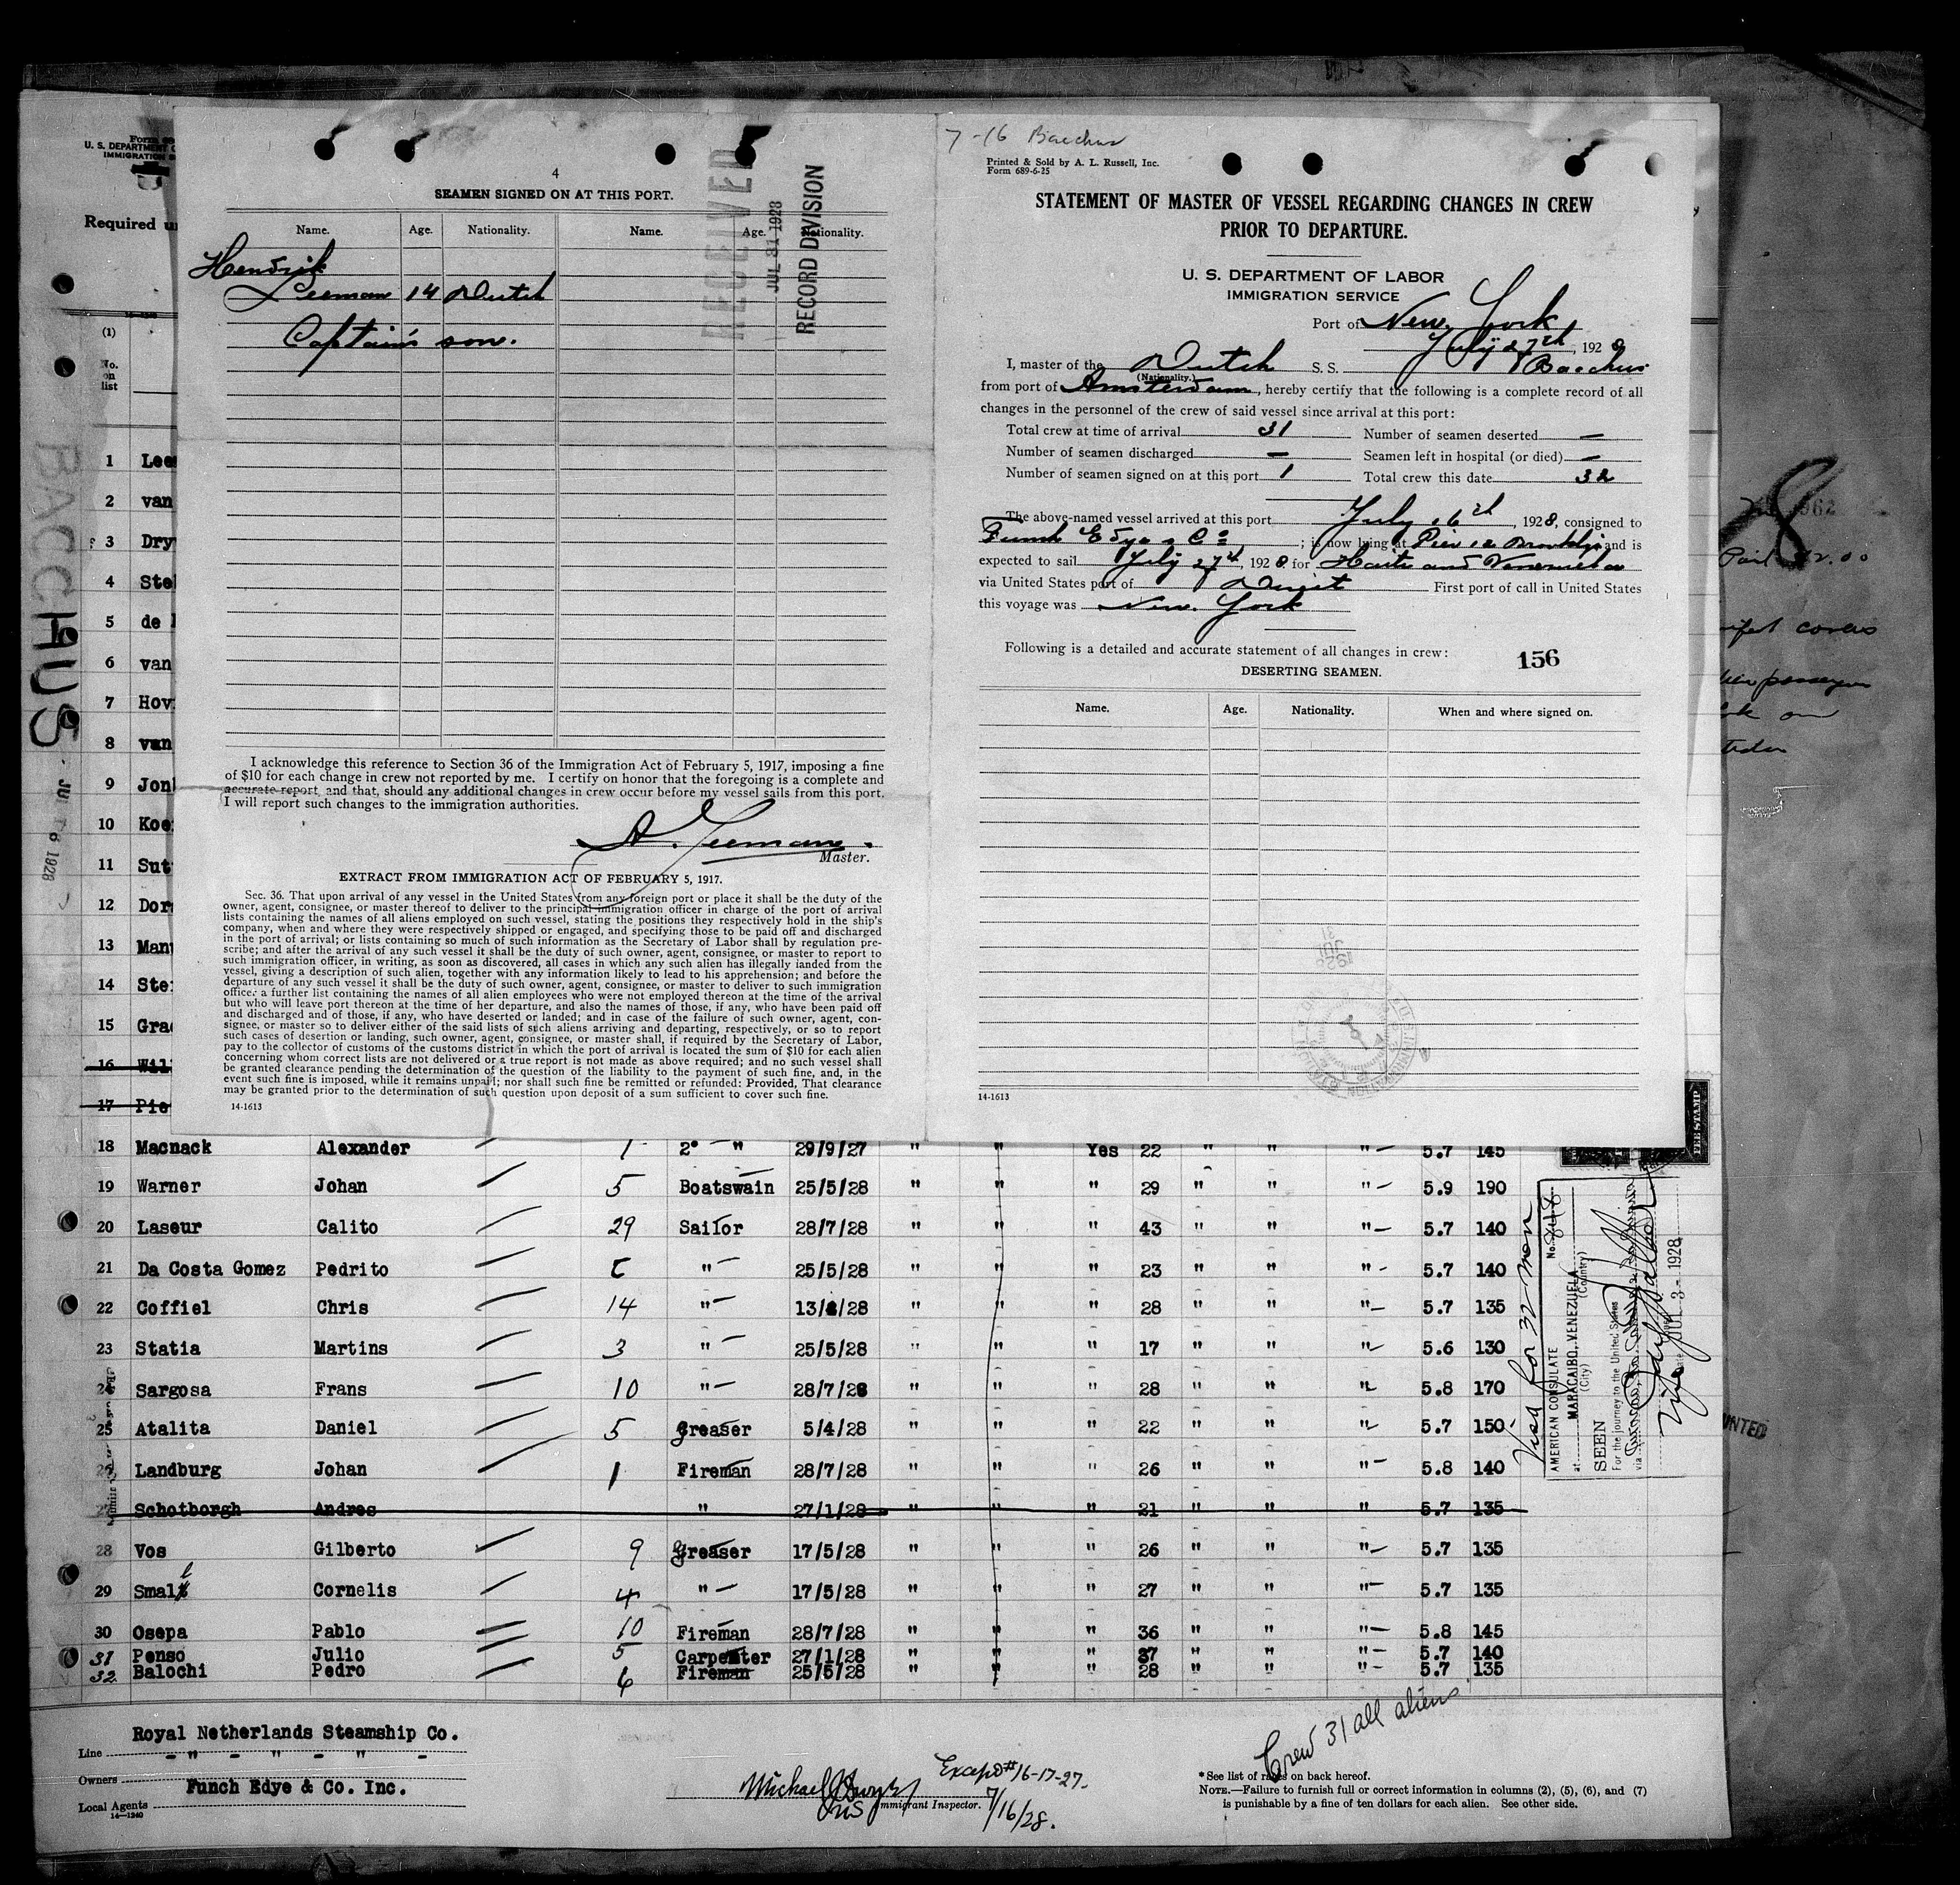 Form 689
U. S. DEPARTMENT O
IMMIGRATION S
Required u
(1)
No.
on
list
BACCHUS
1928
4
SEAMEN SIGNED ON AT THIS PORT.
Name. Age. Nationality. Name. Age. Nationality.
RECEIVED
JUL 31 1928
RECORD DIVISION
Hendrik
Leeman 14 Dutch
Captain's son.
I acknowledge this reference to Section 36 of the Immigration Act of February 5, 1917, imposing a fine
of $10 for each change in crew not reported by me. I certify on honor that the foregoing is a complete and
accurate report, and that, should any additional changes in crew occur before my vessel sails from this port.
I will report such changes to the immigration authorities.
A. Leeman.
Master.
EXTRACT FROM IMMIGRATION ACT OF FEBRUARY 5, 1917.
Sec. 36. That upon arrival of any vessel in the United States from any foreign port or place it shall be the duty of the
owner, agent, consignee, or master thereof to deliver to the principal immigration officer in charge of the port of arrival
lists containing the names of all aliens employed on such vessel, stating the positions they respectively hold in the ship's
company, when and where they were respectively shipped or engaged, and specifying those to be paid off and discharged
in the port of arrival; or lists containing so much of such information as the Secretary of Labor shall by regulation pre-
scribe; and after the arrival of any such vessel it shall be the duty of such owner, agent, consignee, or master to report to
such immigration officer, in writing, as soon as discovered, all cases in which any such alien has illegally landed from the
vessel, giving a description of such alien, together with any information likely to lead to his apprehension; and before the
departure of any such vessel it shall be the duty of such owner, agent, consignee, or master to deliver to such immigration
officer a further list containing the names of all alien employees who were not employed thereon at the time of the arrival
but who will leave port thereon at the time of her departure, and also the names of those, if any, who have been paid off
and discharged and of those, if any, who have deserted or landed; and in case of the failure of such owner, agent, con-
signee, or master so to deliver either of the said lists of such aliens arriving and departing, respectively, or so to report
such cases of desertion or landing, such owner, agent, consignee, or master shall, if required by the Secretary of Labor,
pay to the collector of customs of the customs district in which the port of arrival is located the sum of $10 for each alien
concerning whom correct lists are not delivered or a true report is not made as above required; and no such vessel shall
be granted clearance pending the determination of the question of the liability to the payment of such fine, and, in the
event such fine is imposed, while it remains unpaid; nor shall such fine be remitted or refunded: Provided, That clearance
may be granted prior to the determination of such question upon deposit of a sum sufficient to cover such fine.
14-1613
7-16 Bacchus
Printed & Sold by A. L. Russell, Inc.
Form 689-6-25
STATEMENT OF MASTER OF VESSEL REGARDING CHANGES IN CREW
PRIOR TO DEPARTURE.
U. S. DEPARTMENT OF LABOR
IMMIGRATION SERVICE
Port of New York
July 27th, 1928
I, master of the Dutch S. S. Bacchus
(Nationality.)
from port of Amsterdam, hereby certify that the following is a complete record of all
changes in the personnel of the crew of said vessel since arrival at this port:
Total crew at time of arrival 31 Number of seamen deserted —
Number of seamen discharged — Seamen left in hospital (or died) —
Number of seamen signed on at this port 1 Total crew this date 32
The above-named vessel arrived at this port July 16th, 1928, consigned to
Funch Edye & Co; is now lying at Pier 12 Brooklyn and is
expected to sail July 27th, 1928 for Haiti and Venezuela
via United States port of Direct First port of call in United States
this voyage was New York
Following is a detailed and accurate statement of all changes in crew:
156
DESERTING SEAMEN.
Name. Age. Nationality. When and where signed on.
14-1613
1 Lee
2 van
3 Dry
4 Ste
5 de
6 van
7 Hov
8 van
9 Jon
10 Koe
11 Sut
12 Dor
13 Man
14 Ste
15 Gra
16 Wil
17 Pie
18 Macnack Alexander 1 2° " 29/9/27 " " Yes 22 " " " 5.7 145
19 Warner Johan 5 Boatswain 25/5/28 " " " 29 " " " 5.9 190
20 Laseur Calito 29 Sailor 28/7/28 " " " 43 " " " 5.7 140
21 Da Costa Gomez Pedrito " 25/5/28 " " " 23 " " " 5.7 140
22 Coffiel Chris 14 " 13/ /28 " " " 28 " " " 5.7 135
23 Statia Martins 3 " 25/5/28 " " " 17 " " " 5.6 130
24 Sargosa Frans 10 " 28/7/28 " " " 28 " " " 5.8 170
25 Atalita Daniel 5 Greaser 5/4/28 " " " 22 " " " 5.7 150
26 Landburg Johan 1 Fireman 28/7/28 " " " 26 " " " 5.8 140
27 Schotborgh Andres " 27/1/28 " " " 21 " " " 5.7 135
28 Vos Gilberto 9 Greaser 17/5/28 " " " 26 " " " 5.7 135
29 Small Cornelis 4 " 17/5/28 " " " 27 " " " 5.7 135
30 Osepa Pablo 10 Fireman 28/7/28 " " " 36 " " " 5.8 145
31 Penso Julio 5 Carpenter 27/1/28 " " " 37 " " " 5.7 140
32 Balochi Pedro 6 Fireman 25/5/28 " " " 28 " " " 5.7 135
FEE STAMP
Visa for 32 men
AMERICAN CONSULATE No.
at MARACAIBO, VENEZUELA
(City) (Country)
SEEN
For the journey to the United States
via
Date JUL 3 - 1928
Paid $2.00
covers
passengers
Line Royal Netherlands Steamship Co.
Owners - " - " - " -
Local Agents Funch Edye & Co. Inc.
14—1240
Crew 31 all aliens
Except #16-17-27.
Michael
Immigrant Inspector. 7/16/28.
* See list of races on back hereof.
NOTE.—Failure to furnish full or correct information in columns (2), (5), (6), and (7)
is punishable by a fine of ten dollars for each alien. See other side.